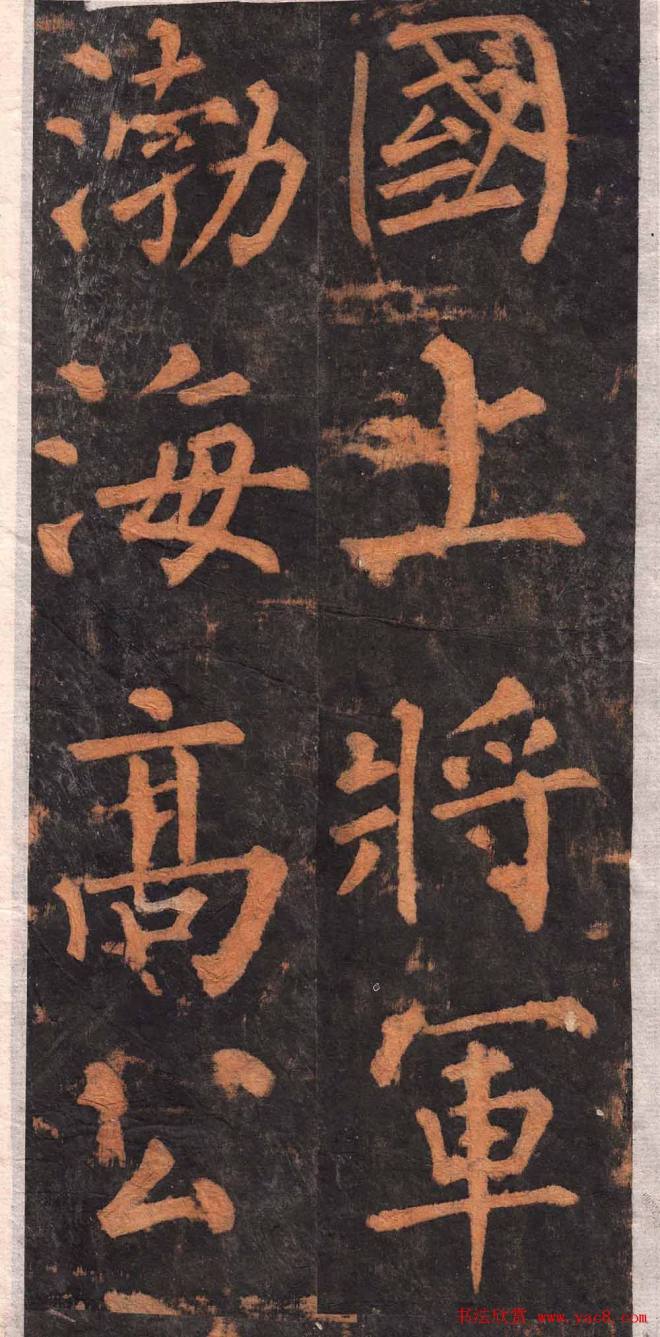 國上將軍
渤海高公
书法欣赏 www.yac8.com